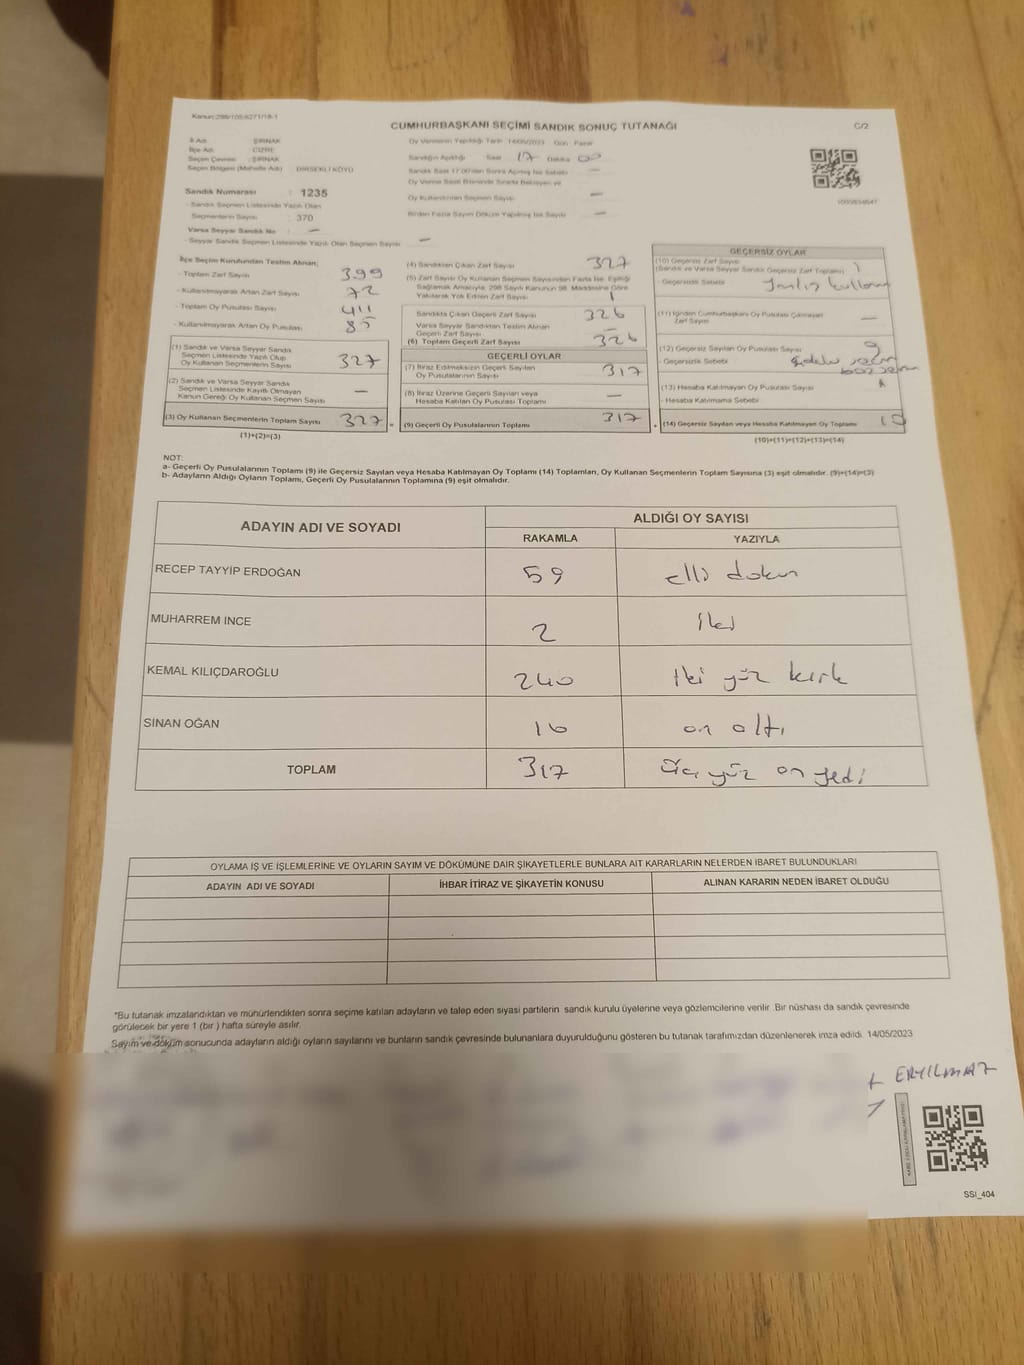 Kanun:298/105;6271/18-1
CUMHURBAŞKANI SEÇİMİ SANDIK SONUÇ TUTANAĞI
C/2
İl Adı : ŞIRNAK
İlçe Adı : CİZRE
Seçim Çevresi : ŞIRNAK
Seçim Bölgesi (Mahalle Adı) : DİRSEKLİ KÖYÜ
Sandık Numarası : 1235
- Sandık Seçmen Listesinde Yazılı Olan
Seçmenlerin Sayısı : 370
Varsa Seyyar Sandık No : —
- Seyyar Sandık Seçmen Listesinde Yazılı Olan Seçmen Sayısı : —
Oy Vermenin Yapıldığı Tarih : 14/05/2023 Gün : Pazar
Sandığın Açıldığı Saat 17 Dakika 00
Sandık Saat 17.00'den Sonra Açılmış İse Sebebi —
Oy Verme Saati Bitiminde Sırada Bekleyen ve
Oy Kullandırılan Seçmen Sayısı —
Birden Fazla Sayım Döküm Yapılmış İse Sayısı —
İlçe Seçim Kurulundan Teslim Alınan;
- Toplam Zarf Sayısı 399
- Kullanılmayarak Artan Zarf Sayısı 72
- Toplam Oy Pusulası Sayısı 411
- Kullanılmayarak Artan Oy Pusulası 85
(1) Sandık ve Varsa Seyyar Sandık
Seçmen Listesinde Yazılı Olup
Oy Kullanan Seçmenlerin Sayısı 327
(2) Sandık ve Varsa Seyyar Sandık
Seçmen Listesinde Kayıtlı Olmayan
Kanun Gereği Oy Kullanan Seçmen Sayısı —
(3) Oy Kullanan Seçmenlerin Toplam Sayısı 327 =
(1)+(2)=(3)
(4) Sandıktan Çıkan Zarf Sayısı 327
(5) Zarf Sayısı Oy Kullanan Seçmen Sayısından Fazla İse, Eşitliği
Sağlamak Amacıyla, 298 Sayılı Kanunun 98. Maddesine Göre
Yakılarak Yok Edilen Zarf Sayısı 1
Sandıkta Çıkan Geçerli Zarf Sayısı 326
Varsa Seyyar Sandıktan Teslim Alınan
Geçerli Zarf Sayısı
(6) Toplam Geçerli Zarf Sayısı 326
GEÇERLİ OYLAR
(7) İtiraz Edilmeksizin Geçerli Sayılan
Oy Pusulalarının Sayısı 317
(8) İtiraz Üzerine Geçerli Sayılan veya
Hesaba Katılan Oy Pusulası Toplamı —
(9) Geçerli Oy Pusulalarının Toplamı 317 +
GEÇERSİZ OYLAR
(10) Geçersiz Zarf Sayısı
(Sandık ve Varsa Seyyar Sandık Geçersiz Zarf Toplamı) 1
- Geçersizlik Sebebi
(11) İçinden Cumhurbaşkanı Oy Pusulası Çıkmayan
Zarf Sayısı —
(12) Geçersiz Sayılan Oy Pusulası Sayısı 9
- Geçersizlik Sebebi
(13) Hesaba Katılmayan Oy Pusulası Sayısı
- Hesaba Katılmama Sebebi
(14) Geçersiz Sayılan veya Hesaba Katılmayan Oy Toplamı 10
(10)+(11)+(12)+(13)=(14)
NOT:
a- Geçerli Oy Pusulalarının Toplamı (9) ile Geçersiz Sayılan veya Hesaba Katılmayan Oy Toplamı (14) Toplamları, Oy Kullanan Seçmenlerin Toplam Sayısına (3) eşit olmalıdır. (9)+(14)=(3)
b- Adayların Aldığı Oyların Toplamı, Geçerli Oy Pusulalarının Toplamına (9) eşit olmalıdır.
ADAYIN ADI VE SOYADI
ALDIĞI OY SAYISI
RAKAMLA YAZIYLA
RECEP TAYYİP ERDOĞAN 59 elli dokuz
MUHARREM İNCE 2 iki
KEMAL KILIÇDAROĞLU 240 iki yüz kırk
SİNAN OĞAN 16 on altı
TOPLAM 317 üç yüz on yedi
OYLAMA İŞ VE İŞLEMLERİNE VE OYLARIN SAYIM VE DÖKÜMÜNE DAİR ŞİKAYETLERLE BUNLARA AİT KARARLARIN NELERDEN İBARET BULUNDUKLARI
ADAYIN ADI VE SOYADI İHBAR İTİRAZ VE ŞİKAYETİN KONUSU ALINAN KARARIN NEDEN İBARET OLDUĞU
*Bu tutanak imzalandıktan ve mühürlendikten sonra seçime katılan adayların ve talep eden siyasi partilerin sandık kurulu üyelerine veya gözlemcilerine verilir. Bir nüshası da sandık çevresinde
görülecek bir yere 1 (bir ) hafta süreyle asılır.
Sayım ve döküm sonucunda adayların aldığı oyların sayılarını ve bunların sandık çevresinde bulunanlara duyurulduğunu gösteren bu tutanak tarafımızdan düzenlenerek imza edildi. 14/05/2023
ERYILMAZ
SSI_404